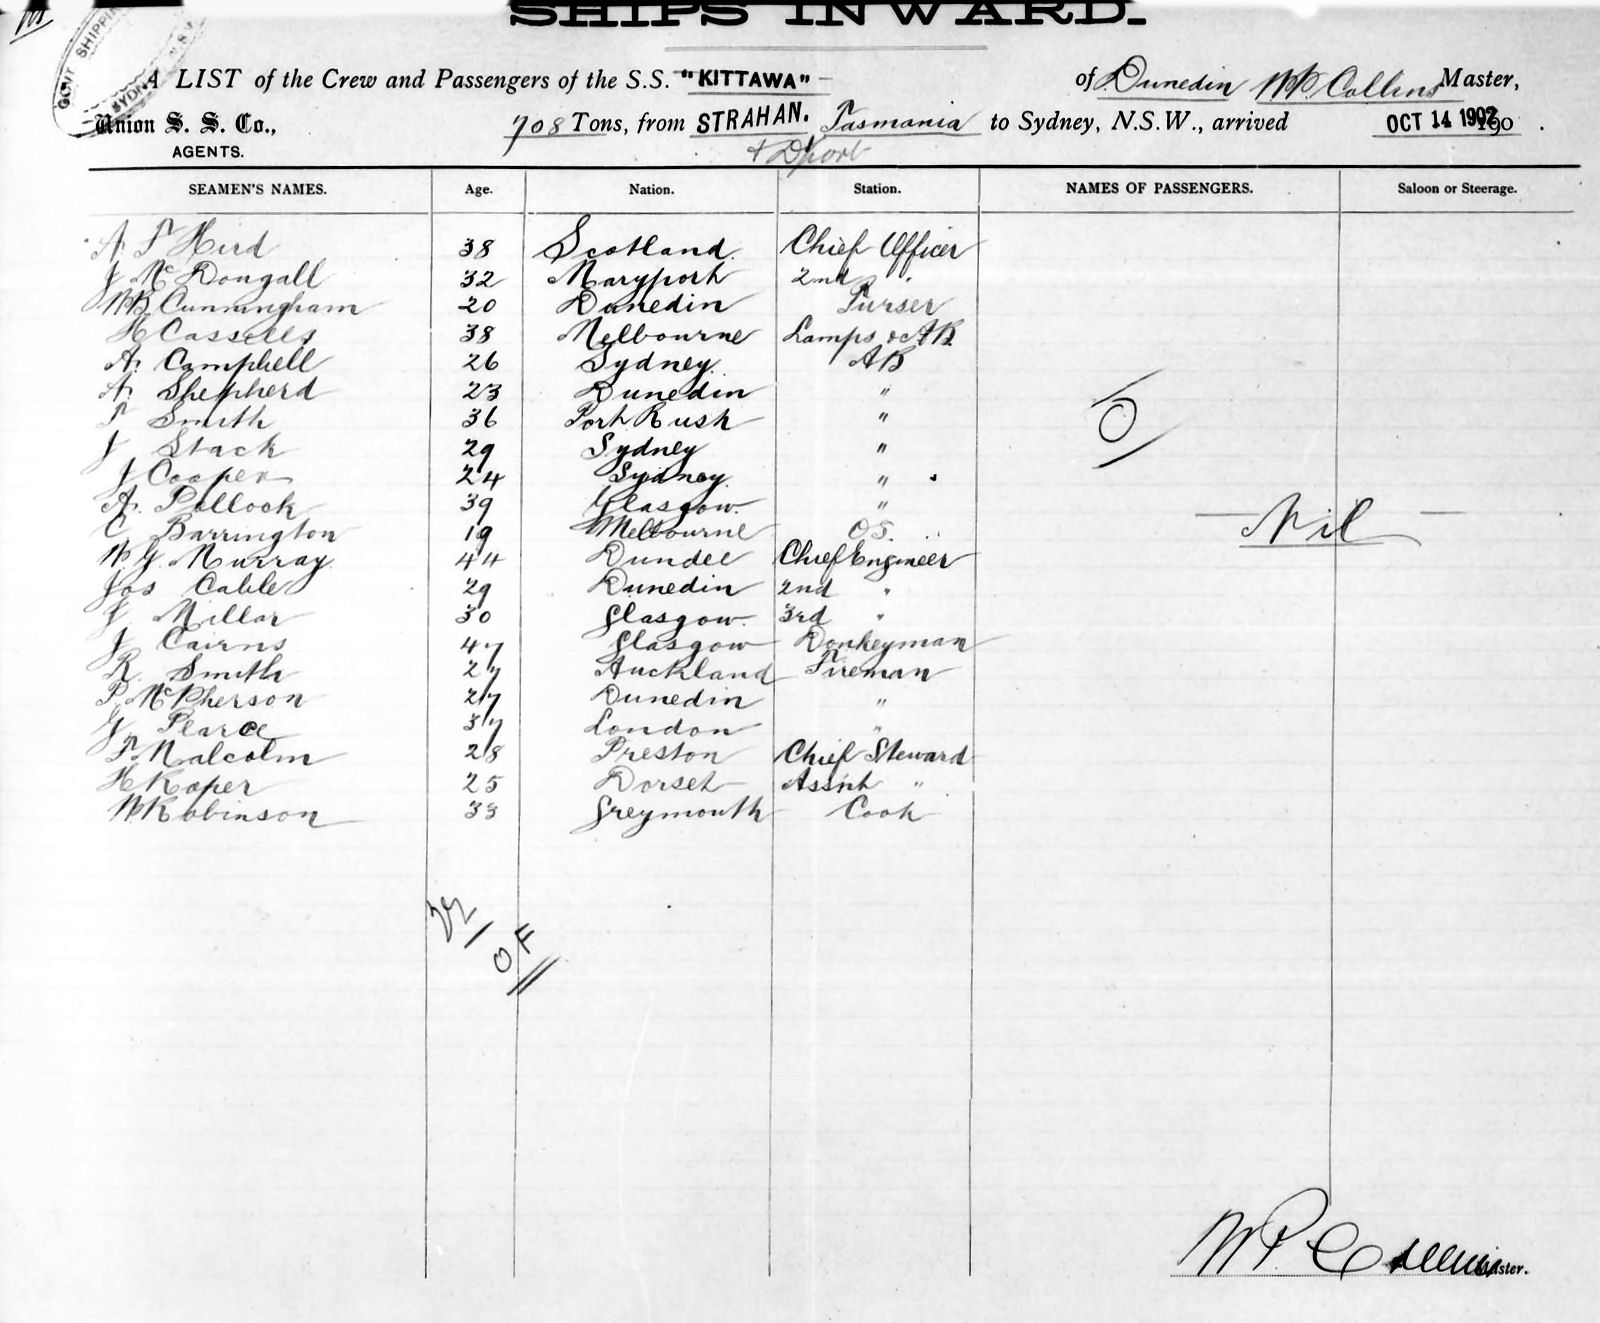 SHIPS INWARD.
A LIST of the Crew and Passengers of the S.S. "KITTAWA" of Dunedin W P Collins Master,
Union S. S. Co., 708 Tons, from STRAHAN. Tasmania to Sydney, N.S.W., arrived OCT 14 1902 190 .
AGENTS. + D'port
SEAMEN'S NAMES. Age. Nation. Station. NAMES OF PASSENGERS. Saloon or Steerage.
A F Hird 38 Scotland. Chief Officer
J McDougall 32 Maryport 2nd "
WB Cunningham 20 Dunedin Purser
H Cassells 38 Melbourne Lamps & AB
A. Campbell 26 Sydney. AB
A. Shepherd 23 Dunedin "
T Smith 36 Port Rush "
J Stack 29 Sydney "
J Cooper 24 Sydney. "
A. Pollock 39 Glasgow. "
C Barrington 19 Melbourne OS.
Nil
W G Murray 44 Dundee Chief Engineer
Jos Cable 29 Dunedin 2nd "
J Millar 30 Glasgow. 3rd "
J Cairns 47 Glasgow Donkeyman
R. Smith 27 Auckland Fireman
P. McPherson 27 Dunedin "
G. Pearce 37 London "
T. Malcolm 28 Preston Chief Steward
H Roper 25 Dorset Assnt "
W Robinson 33 Greymouth Cook
O F
W P Collins Master.